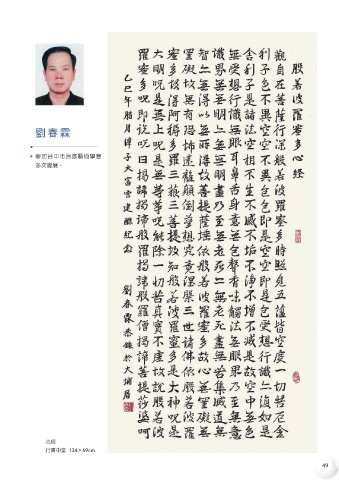 劉春霖
• 參加台中市藝術學會
多次聯展。
般若波羅蜜多心經
觀自在菩薩行深般若波羅蜜多時照見五蘊皆空度一切苦厄舍
利子色不異空空不異色色即是空空即是色受想行識亦復如是
舍利子是諸法空相不生不滅不垢不淨不增不減是故空中無色
無受想行識無眼耳鼻舌身意無色聲香味觸法無眼界乃至無意
識界無無明亦無無明盡乃至無老死亦無老死盡無苦集滅道無
智亦無得以無所得故菩提薩埵依般若波羅蜜多故心無罣礙無
罣礙故無有恐怖遠離顛倒夢想究竟涅槃三世諸佛依般若波羅
蜜多故得阿耨多羅三藐三菩提故知般若波羅蜜多是大神呪是
大明呪是無上呪是無等等呪能除一切苦真實不虛故說般若波
羅蜜多呪即說呪曰揭諦揭諦般羅揭諦般羅僧揭諦菩提莎婆呵
乙巳年臘月大富建醮紀念 劉春霖恭錄於大埔厝
心經
行書中堂 134×69cm
49